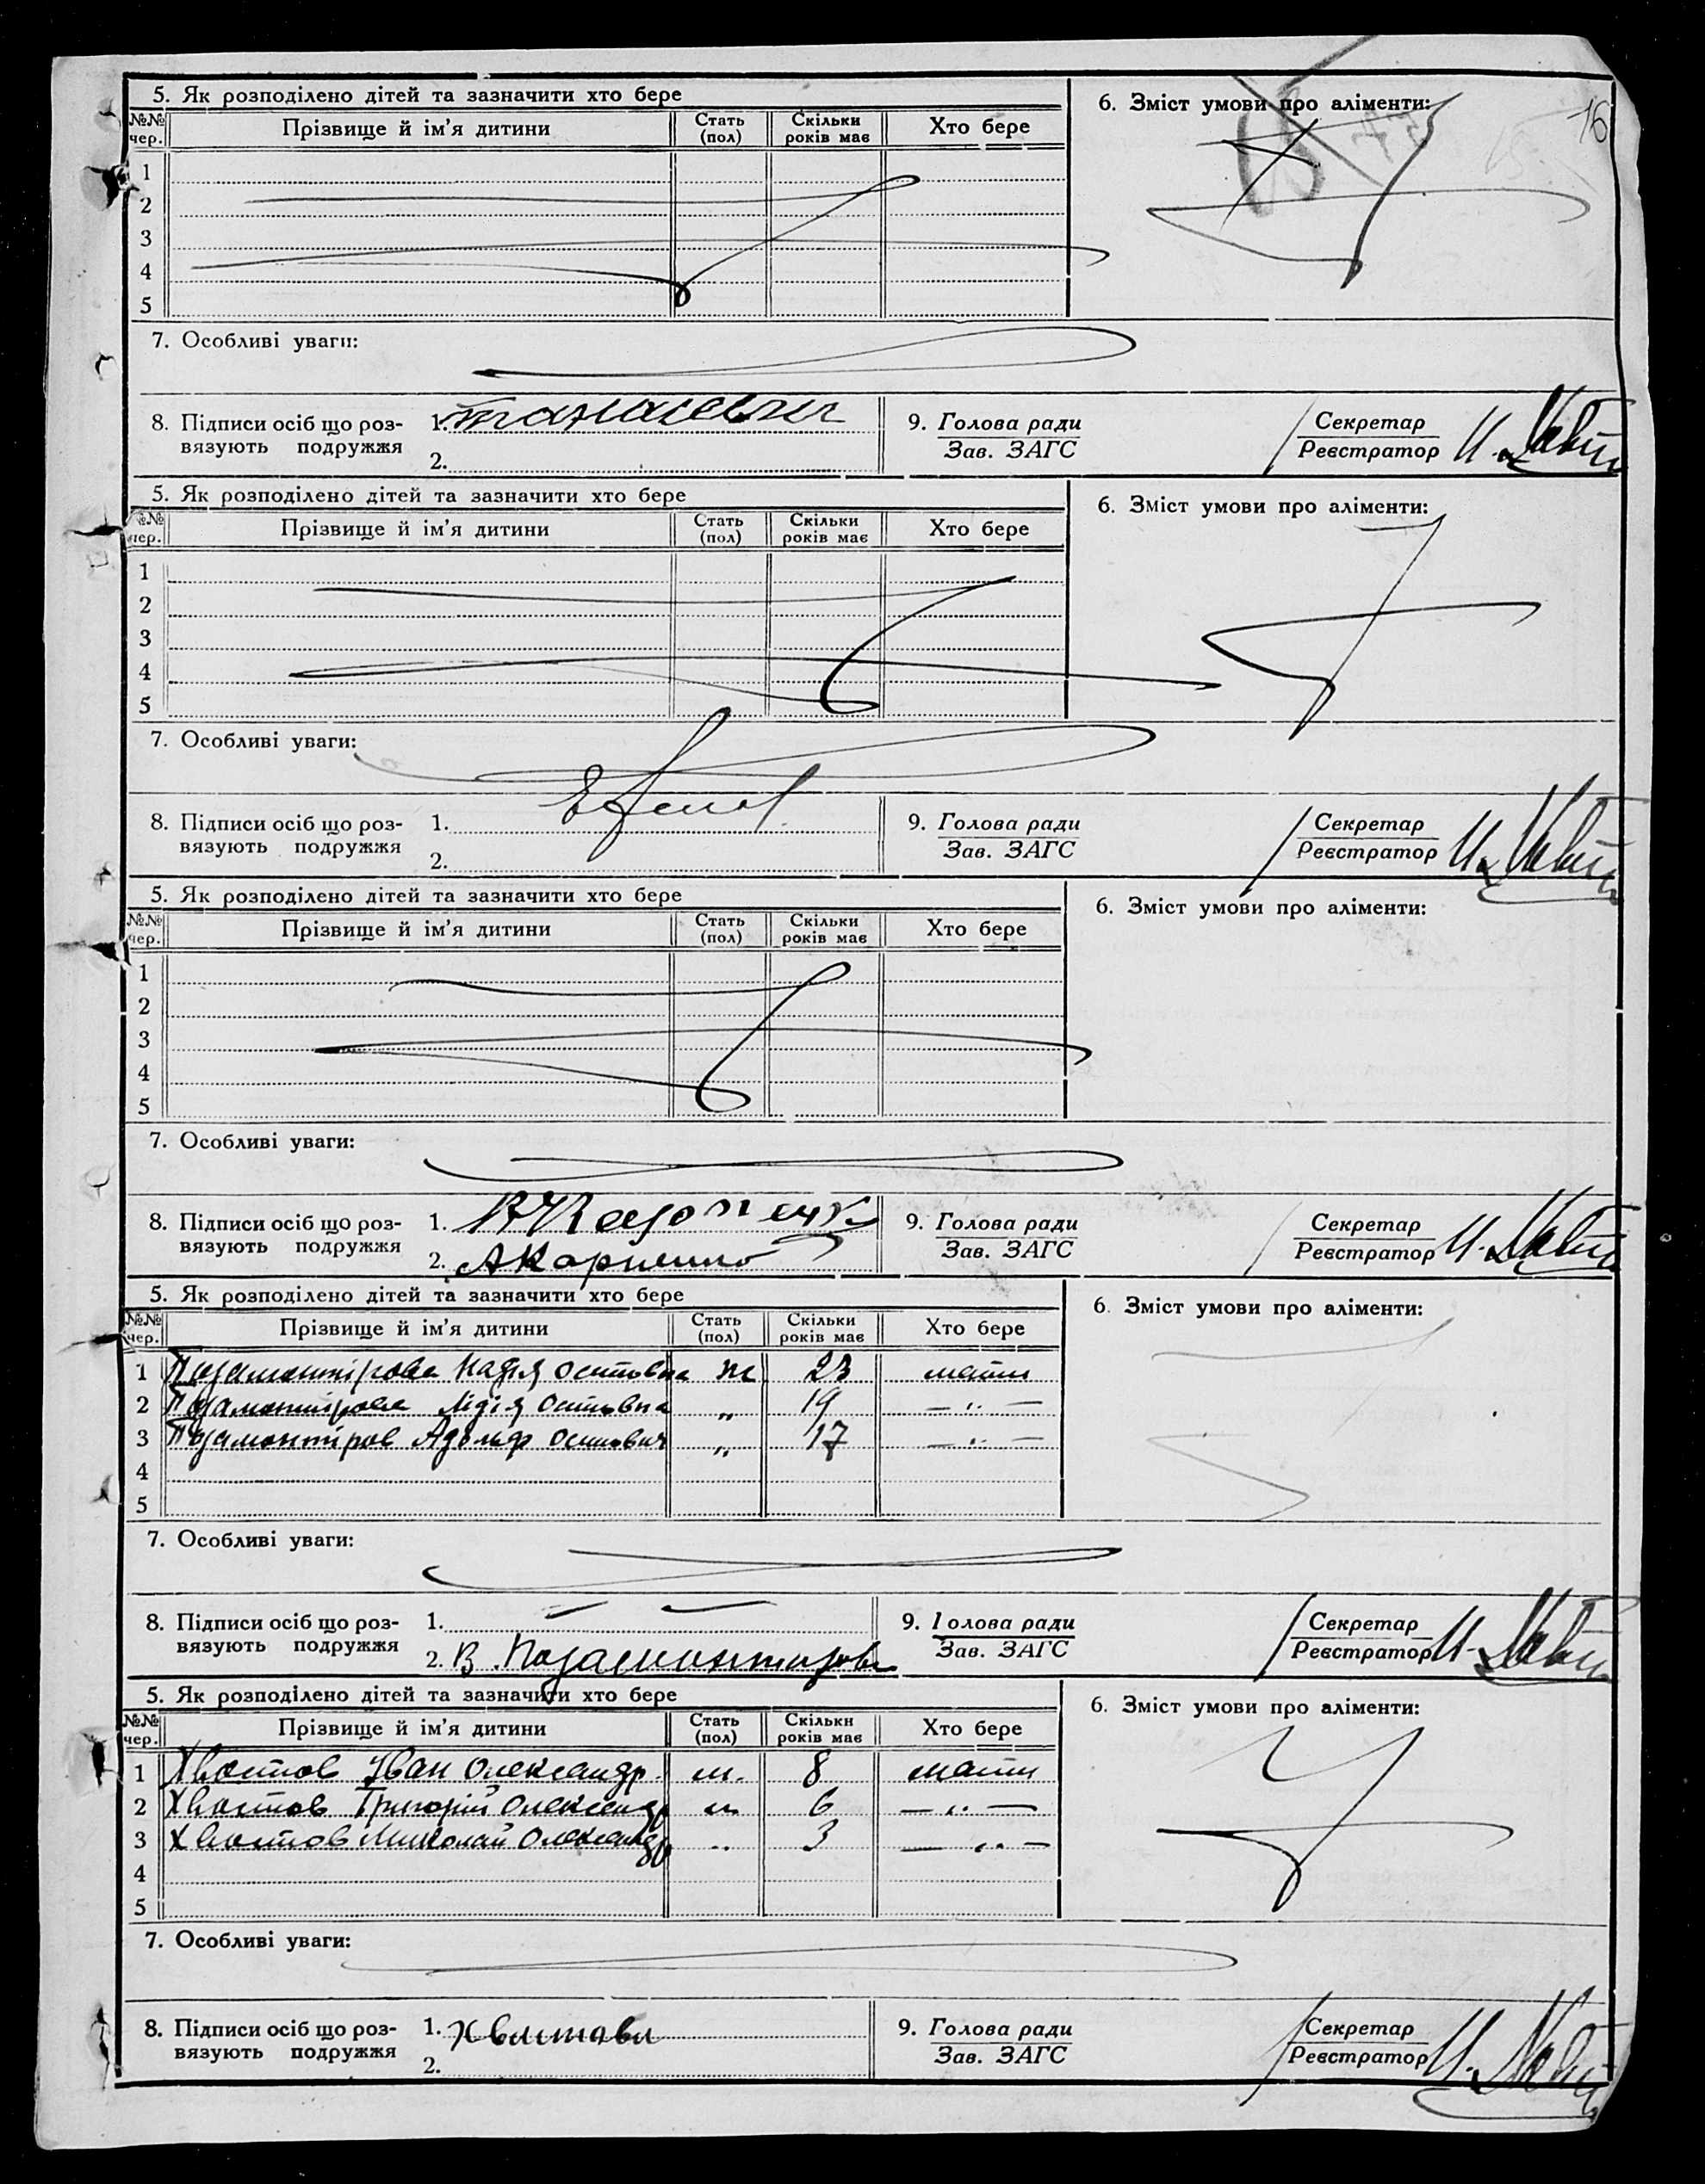 16
5. Як розподілено дітей та зазначити хто бере
6. Зміст умови про аліменти:
№№ чер. Прізвище й ім'я дитини Стать (пол) Скільки років має Хто бере
1
2
3
4
5
7. Особливі уваги:
8. Підписи осіб що роз-
вязують подружжя
1.
2.
9. Голова ради
Зав. ЗАГС
Секретар
Реєстратор
5. Як розподілено дітей та зазначити хто бере
6. Зміст умови про аліменти:
№№ чер. Прізвище й ім'я дитини Стать (пол) Скільки років має Хто бере
1
2
3
4
5
7. Особливі уваги:
8. Підписи осіб що роз-
вязують подружжя
1.
2.
9. Голова ради
Зав. ЗАГС
Секретар
Реєстратор
5. Як розподілено дітей та зазначити хто бере
6. Зміст умови про аліменти:
№№ чер. Прізвище й ім'я дитини Стать (пол) Скільки років має Хто бере
1
2
3
4
5
7. Особливі уваги:
8. Підписи осіб що роз-
вязують подружжя
1.
2. А Карпенко
9. Голова ради
Зав. ЗАГС
Секретар
Реєстратор
5. Як розподілено дітей та зазначити хто бере
6. Зміст умови про аліменти:
№№ чер. Прізвище й ім'я дитини Стать (пол) Скільки років має Хто бере
1 Надія Оситовна ж 23 мати
2 Лідія Оситовна " 19 — " —
3 Адольф " 17 — " —
4
5
7. Особливі уваги:
8. Підписи осіб що роз-
вязують подружжя
1. — —
2. В.
9. Голова ради
Зав. ЗАГС
Секретар
Реєстратор
5. Як розподілено дітей та зазначити хто бере
6. Зміст умови про аліменти:
№№ чер. Прізвище й ім'я дитини Стать (пол) Скільки років має Хто бере
1 Хвостов Іван Олександр. ч. 8 мати
2 Хвостов Григорій Олександр ч 6 — " —
3 Хвостов Миколай Олександр " 3 — " —
4
5
7. Особливі уваги:
8. Підписи осіб що роз-
вязують подружжя
1. Хвостова
2.
9. Голова ради
Зав. ЗАГС
Секретар
Реєстратор